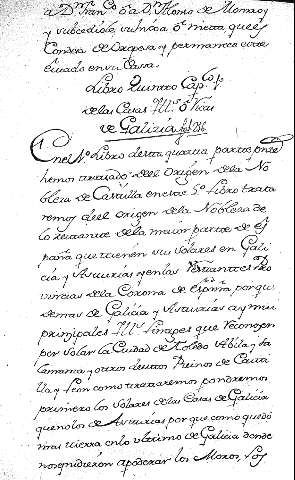 a Dn. Franco. ó a Dn. Alonso de Monroy
y subcediole, su hixa o nieta que es
Condesa de Oropesa y permanece este
Estado en su Casa.
Libro Quinto Cap.
de las Casas
de Galicia
En el Libro desta quarta parte
hemos tratado del Origen de la No
bleza de Castilla en este 5º libro trata
remos de el origen de la Nobleza de
lo restante de la maior parte de es
paña que tienen sus Solares en Gali
cia y Asturias y en las restantes Pro
vincias de la Corona de españa porque
demas de Galicia y Asturias ay mui
principales Linages que reconocen
por solar la Ciudad de Toledo Abila, Sa
lamanca y otros destos Reinos de Casti
lla y Leon como trataremos pondremos
primero los Solares de las Casas de Galicia
que no los de Asturias por que como quedó
mas tierra en lo ultimo de Galicia donde
no se pudieron apoderar los Moros, los